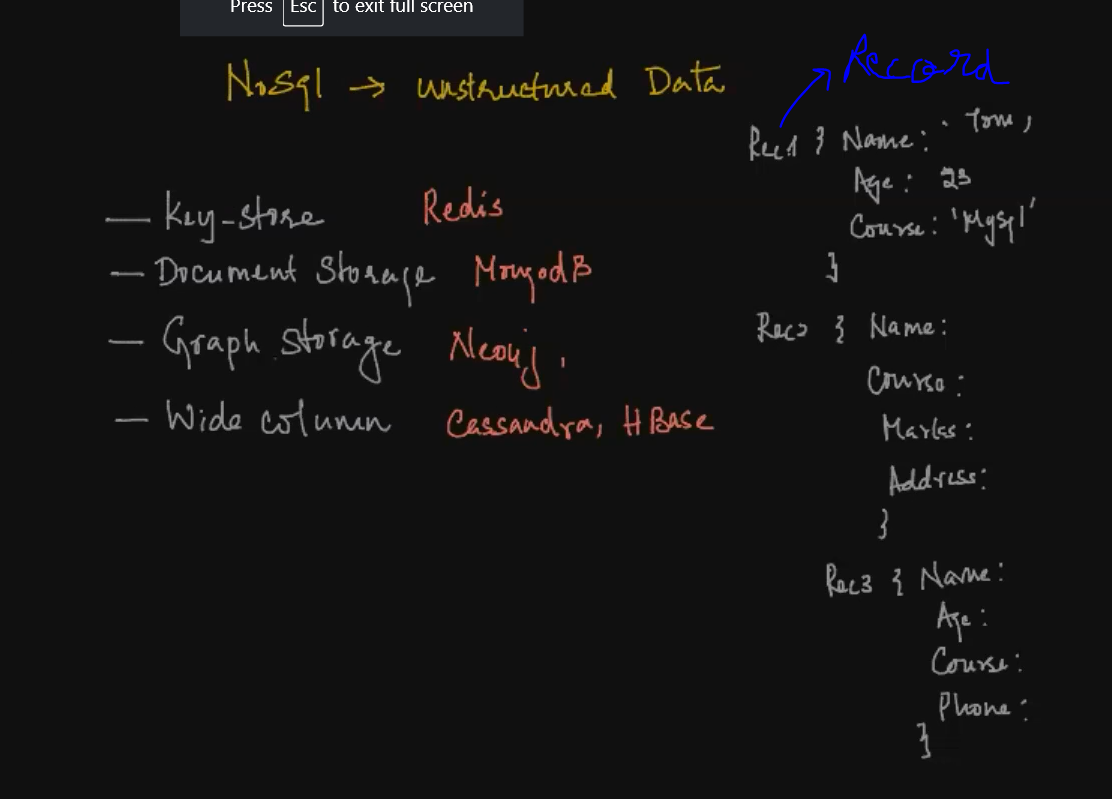 Press Esc to exit full screen
NoSql → unstructured Data
— Key-store Redis
— Document Storage MongodB
— Graph Storage Neo4j,
— Wide column Cassandra, HBase
Record
Rec1 { Name: 'Tom,
Age: 23
Course: 'Mysql'
}
Rec2 { Name:
Course:
Marks:
Address:
}
Rec3 { Name:
Age:
Course:
Phone:
}